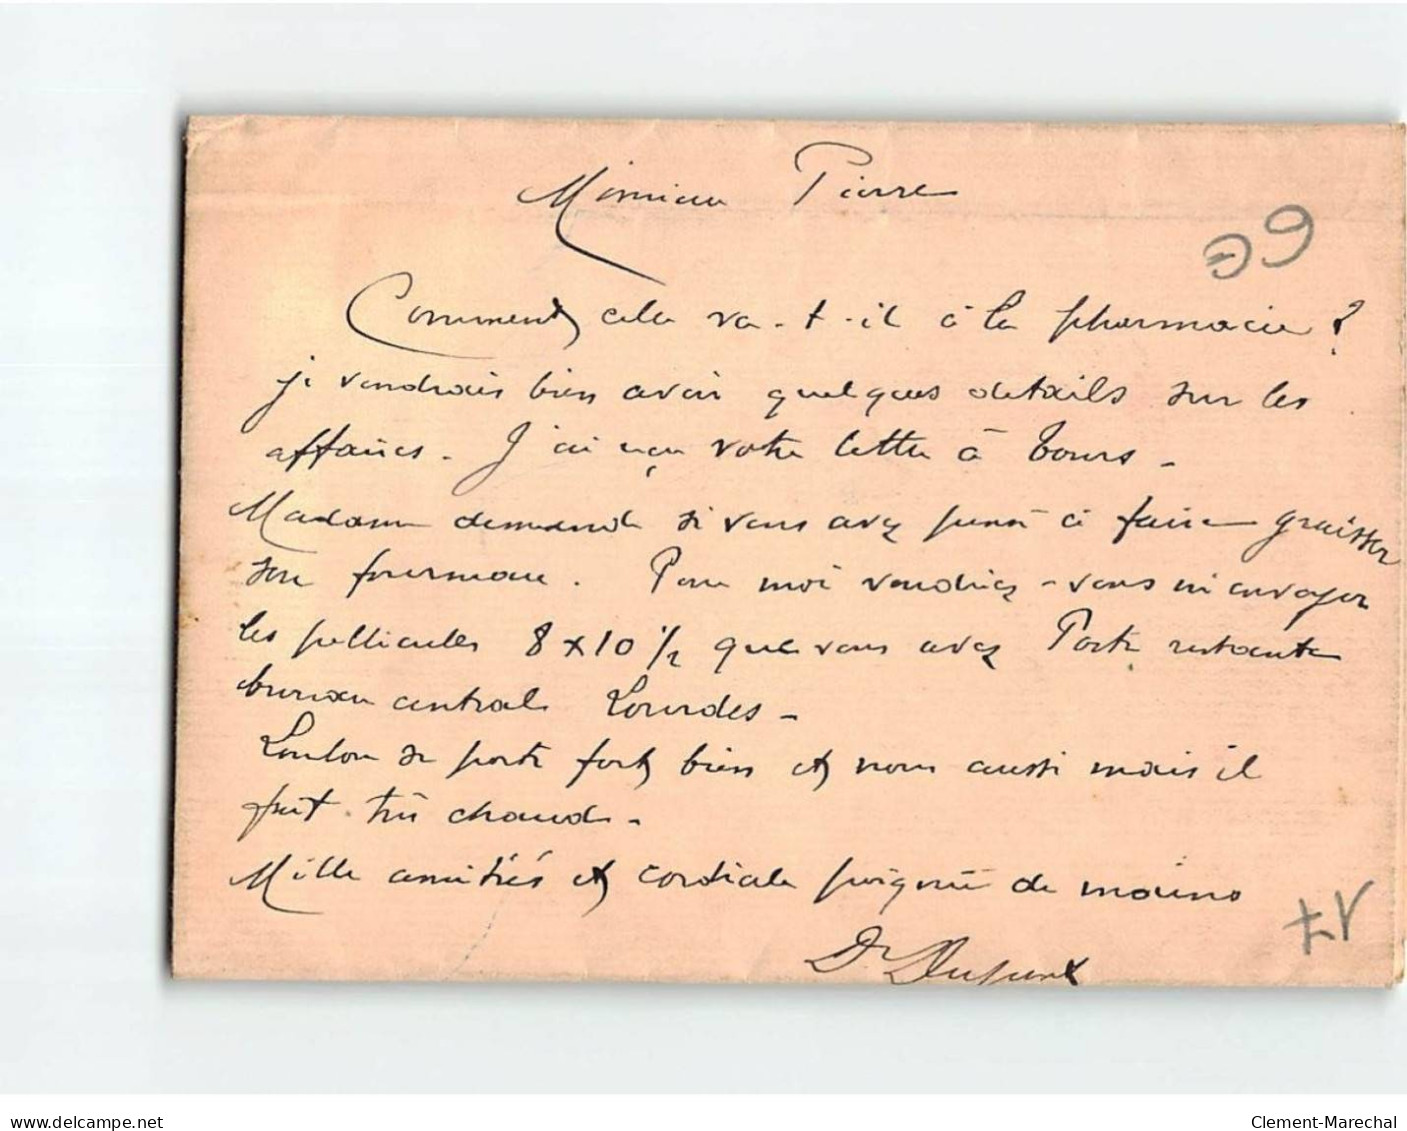 Monsieur Pierre
Comment cela va-t-il à la pharmacie ?
je voudrais bien avoir quelques détails sur les
affaires. J'ai reçu votre lettre à Tours -
Madame demande si vous avez pensé à faire graisser
son fourneau. Pour moi voudriez-vous m'envoyer
les pellicules 8x10 1/2 que vous avez Poste restante
bureau central Lourdes -
Loulou se porte fort bien et nous aussi mais il
fait très chaud -
Mille amitiés et cordiale poignée de mains
Dr Dupont
delcampe.net
Clement-Marechal